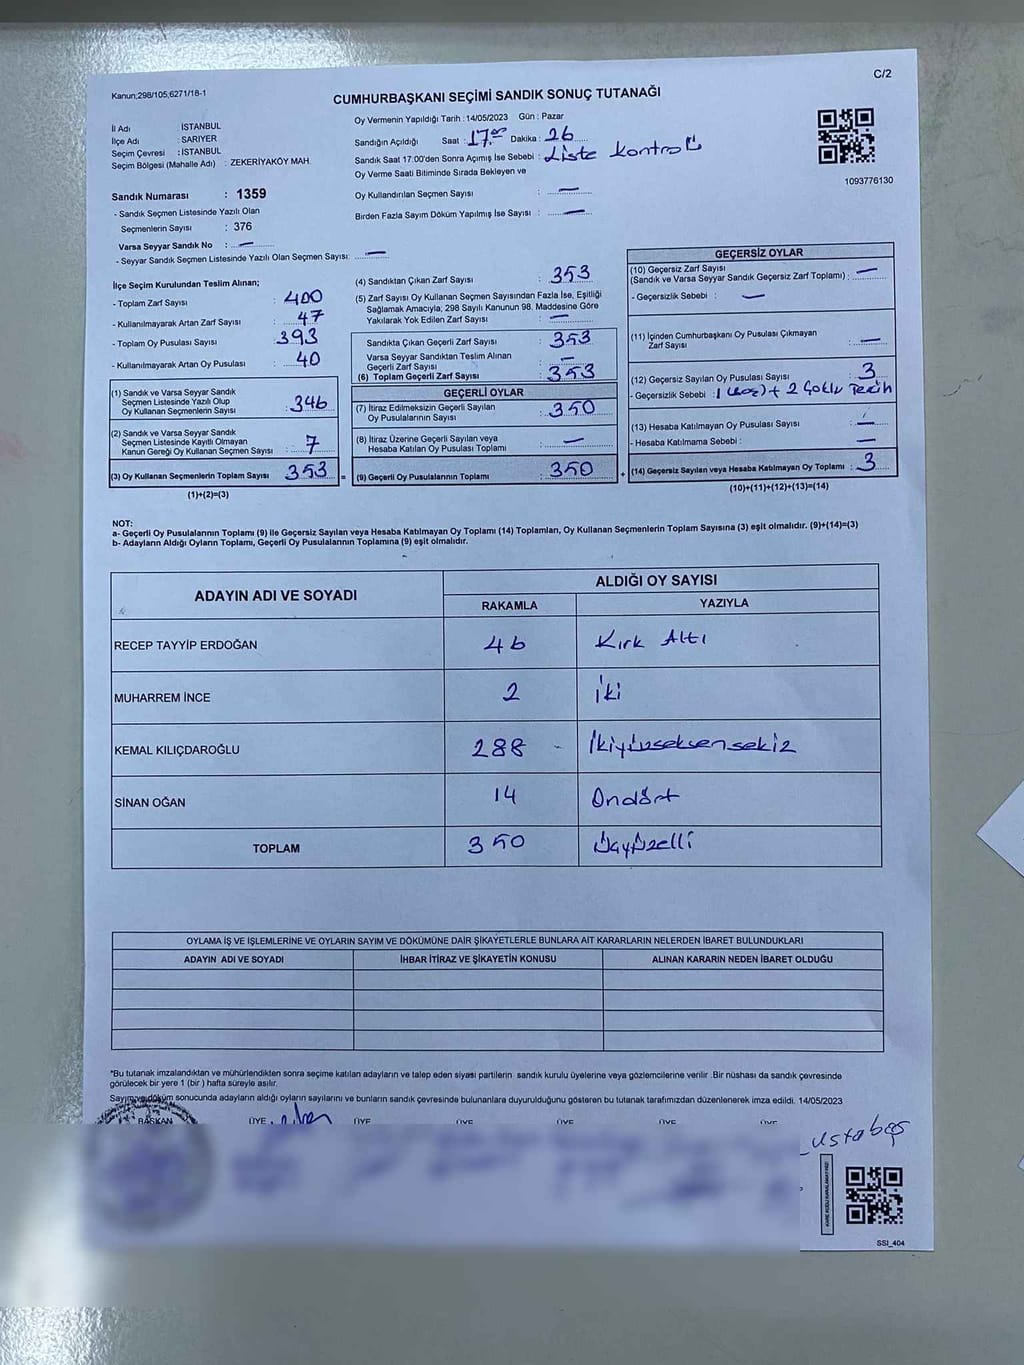 C/2
Kanun;298/105,6271/18-1
CUMHURBAŞKANI SEÇİMİ SANDIK SONUÇ TUTANAĞI
İl Adı : İSTANBUL
İlçe Adı : SARIYER
Seçim Çevresi : İSTANBUL
Seçim Bölgesi (Mahalle Adı) : ZEKERİYAKÖY MAH.
Sandık Numarası : 1359
- Sandık Seçmen Listesinde Yazılı Olan
Seçmenlerin Sayısı : 376
Varsa Seyyar Sandık No : —
- Seyyar Sandık Seçmen Listesinde Yazılı Olan Seçmen Sayısı: —
Oy Vermenin Yapıldığı Tarih : 14/05/2023 Gün : Pazar
Sandığın Açıldığı Saat : 17.00 Dakika : 26
Sandık Saat 17:00'den Sonra Açımış İse Sebebi : Liste kontrolü
Oy Verme Saati Bitiminde Sırada Bekleyen ve
Oy Kullandırılan Seçmen Sayısı : —
Birden Fazla Sayım Döküm Yapılmış İse Sayısı : —
1093776130
İlçe Seçim Kurulundan Teslim Alınan;
- Toplam Zarf Sayısı : 400
- Kullanılmayarak Artan Zarf Sayısı : 47
- Toplam Oy Pusulası Sayısı : 393
- Kullanılmayarak Artan Oy Pusulası : 40
(1) Sandık ve Varsa Seyyar Sandık
Seçmen Listesinde Yazılı Olup
Oy Kullanan Seçmenlerin Sayısı : 346
(2) Sandık ve Varsa Seyyar Sandık
Seçmen Listesinde Kayıtlı Olmayan
Kanun Gereği Oy Kullanan Seçmen Sayısı : 7
(3) Oy Kullanan Seçmenlerin Toplam Sayısı : 353 =
(1)+(2)=(3)
(4) Sandıktan Çıkan Zarf Sayısı : 353
(5) Zarf Sayısı Oy Kullanan Seçmen Sayısından Fazla İse, Eşitliği
Sağlamak Amacıyla; 298 Sayılı Kanunun 98. Maddesine Göre
Yakılarak Yok Edilen Zarf Sayısı : —
Sandıkta Çıkan Geçerli Zarf Sayısı : 353
Varsa Seyyar Sandıktan Teslim Alınan
Geçerli Zarf Sayısı : —
(6) Toplam Geçerli Zarf Sayısı : 353
GEÇERLİ OYLAR
(7) İtiraz Edilmeksizin Geçerli Sayılan
Oy Pusulalarının Sayısı : 350
(8) İtiraz Üzerine Geçerli Sayılan veya
Hesaba Katılan Oy Pusulası Toplamı : —
(9) Geçerli Oy Pusulalarının Toplamı : 350 +
GEÇERSİZ OYLAR
(10) Geçersiz Zarf Sayısı
(Sandık ve Varsa Seyyar Sandık Geçersiz Zarf Toplamı) : —
- Geçersizlik Sebebi : —
(11) İçinden Cumhurbaşkanı Oy Pusulası Çıkmayan
Zarf Sayısı : —
(12) Geçersiz Sayılan Oy Pusulası Sayısı : 3
- Geçersizlik Sebebi : 1 (boş) + 2 Çoklu Tercih
(13) Hesaba Katılmayan Oy Pusulası Sayısı : —
- Hesaba Katılmama Sebebi : —
(14) Geçersiz Sayılan veya Hesaba Katılmayan Oy Toplamı : 3
(10)+(11)+(12)+(13)=(14)
NOT:
a- Geçerli Oy Pusulalarının Toplamı (9) ile Geçersiz Sayılan veya Hesaba Katılmayan Oy Toplamı (14) Toplamları, Oy Kullanan Seçmenlerin Toplam Sayısına (3) eşit olmalıdır. (9)+(14)=(3)
b- Adayların Aldığı Oyların Toplamı, Geçerli Oy Pusulalarının Toplamına (9) eşit olmalıdır.
ADAYIN ADI VE SOYADI ALDIĞI OY SAYISI
RAKAMLA YAZIYLA
RECEP TAYYİP ERDOĞAN 46 Kırk Altı
MUHARREM İNCE 2 iki
KEMAL KILIÇDAROĞLU 288 - İkiyüzseksensekiz
SİNAN OĞAN 14 Ondört
TOPLAM 350 Üçyüzelli
OYLAMA İŞ VE İŞLEMLERİNE VE OYLARIN SAYIM VE DÖKÜMÜNE DAİR ŞİKAYETLERLE BUNLARA AİT KARARLARIN NELERDEN İBARET BULUNDUKLARI
ADAYIN ADI VE SOYADI İHBAR İTİRAZ VE ŞİKAYETİN KONUSU ALINAN KARARIN NEDEN İBARET OLDUĞU
*Bu tutanak imzalandıktan ve mühürlendikten sonra seçime katılan adayların ve talep eden siyasi partilerin sandık kurulu üyelerine veya gözlemcilerine verilir .Bir nüshası da sandık çevresinde
görülecek bir yere 1 (bir ) hafta süreyle asılır.
Sayım ve döküm sonucunda adayların aldığı oyların sayılarını ve bunların sandık çevresinde bulunanlara duyurulduğunu gösteren bu tutanak tarafımızdan düzenlenerek imza edildi. 14/05/2023
BAŞKAN ÜYE ÜYE ÜYE ÜYE ÜYE ÜYE
ustabaş
SSI_404